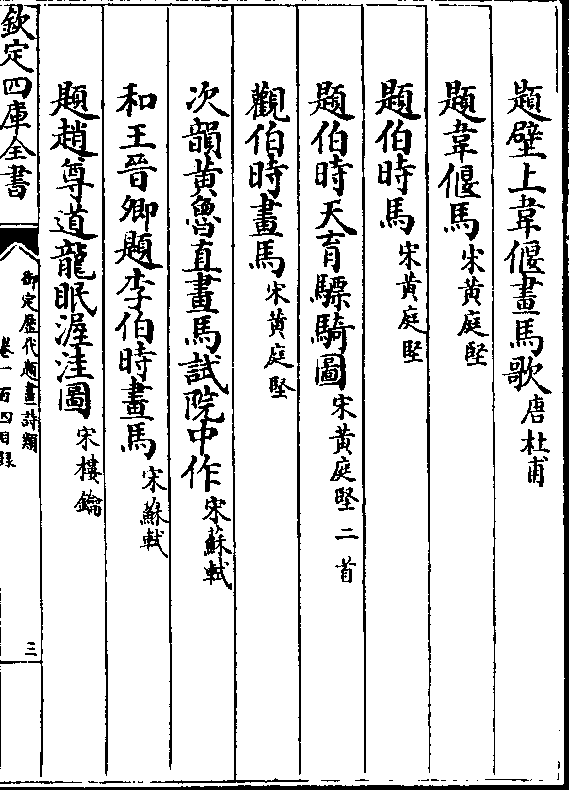 題壁上韋偃畫馬歌唐杜甫
題韋偃馬宋黃庭堅
題伯時馬宋黃庭堅
題伯時天育驃騎圖宋黃庭堅二首
觀伯時畫馬宋黃庭堅
次韻黃魯直畫馬試院中作宋蘇軾
和王晉卿題李伯時畫馬宋蘇軾
題趙尊道龍眠渥洼圖宋樓鑰
欽定四庫全書
御定歷代題畫詩類
卷一百四目錄
三